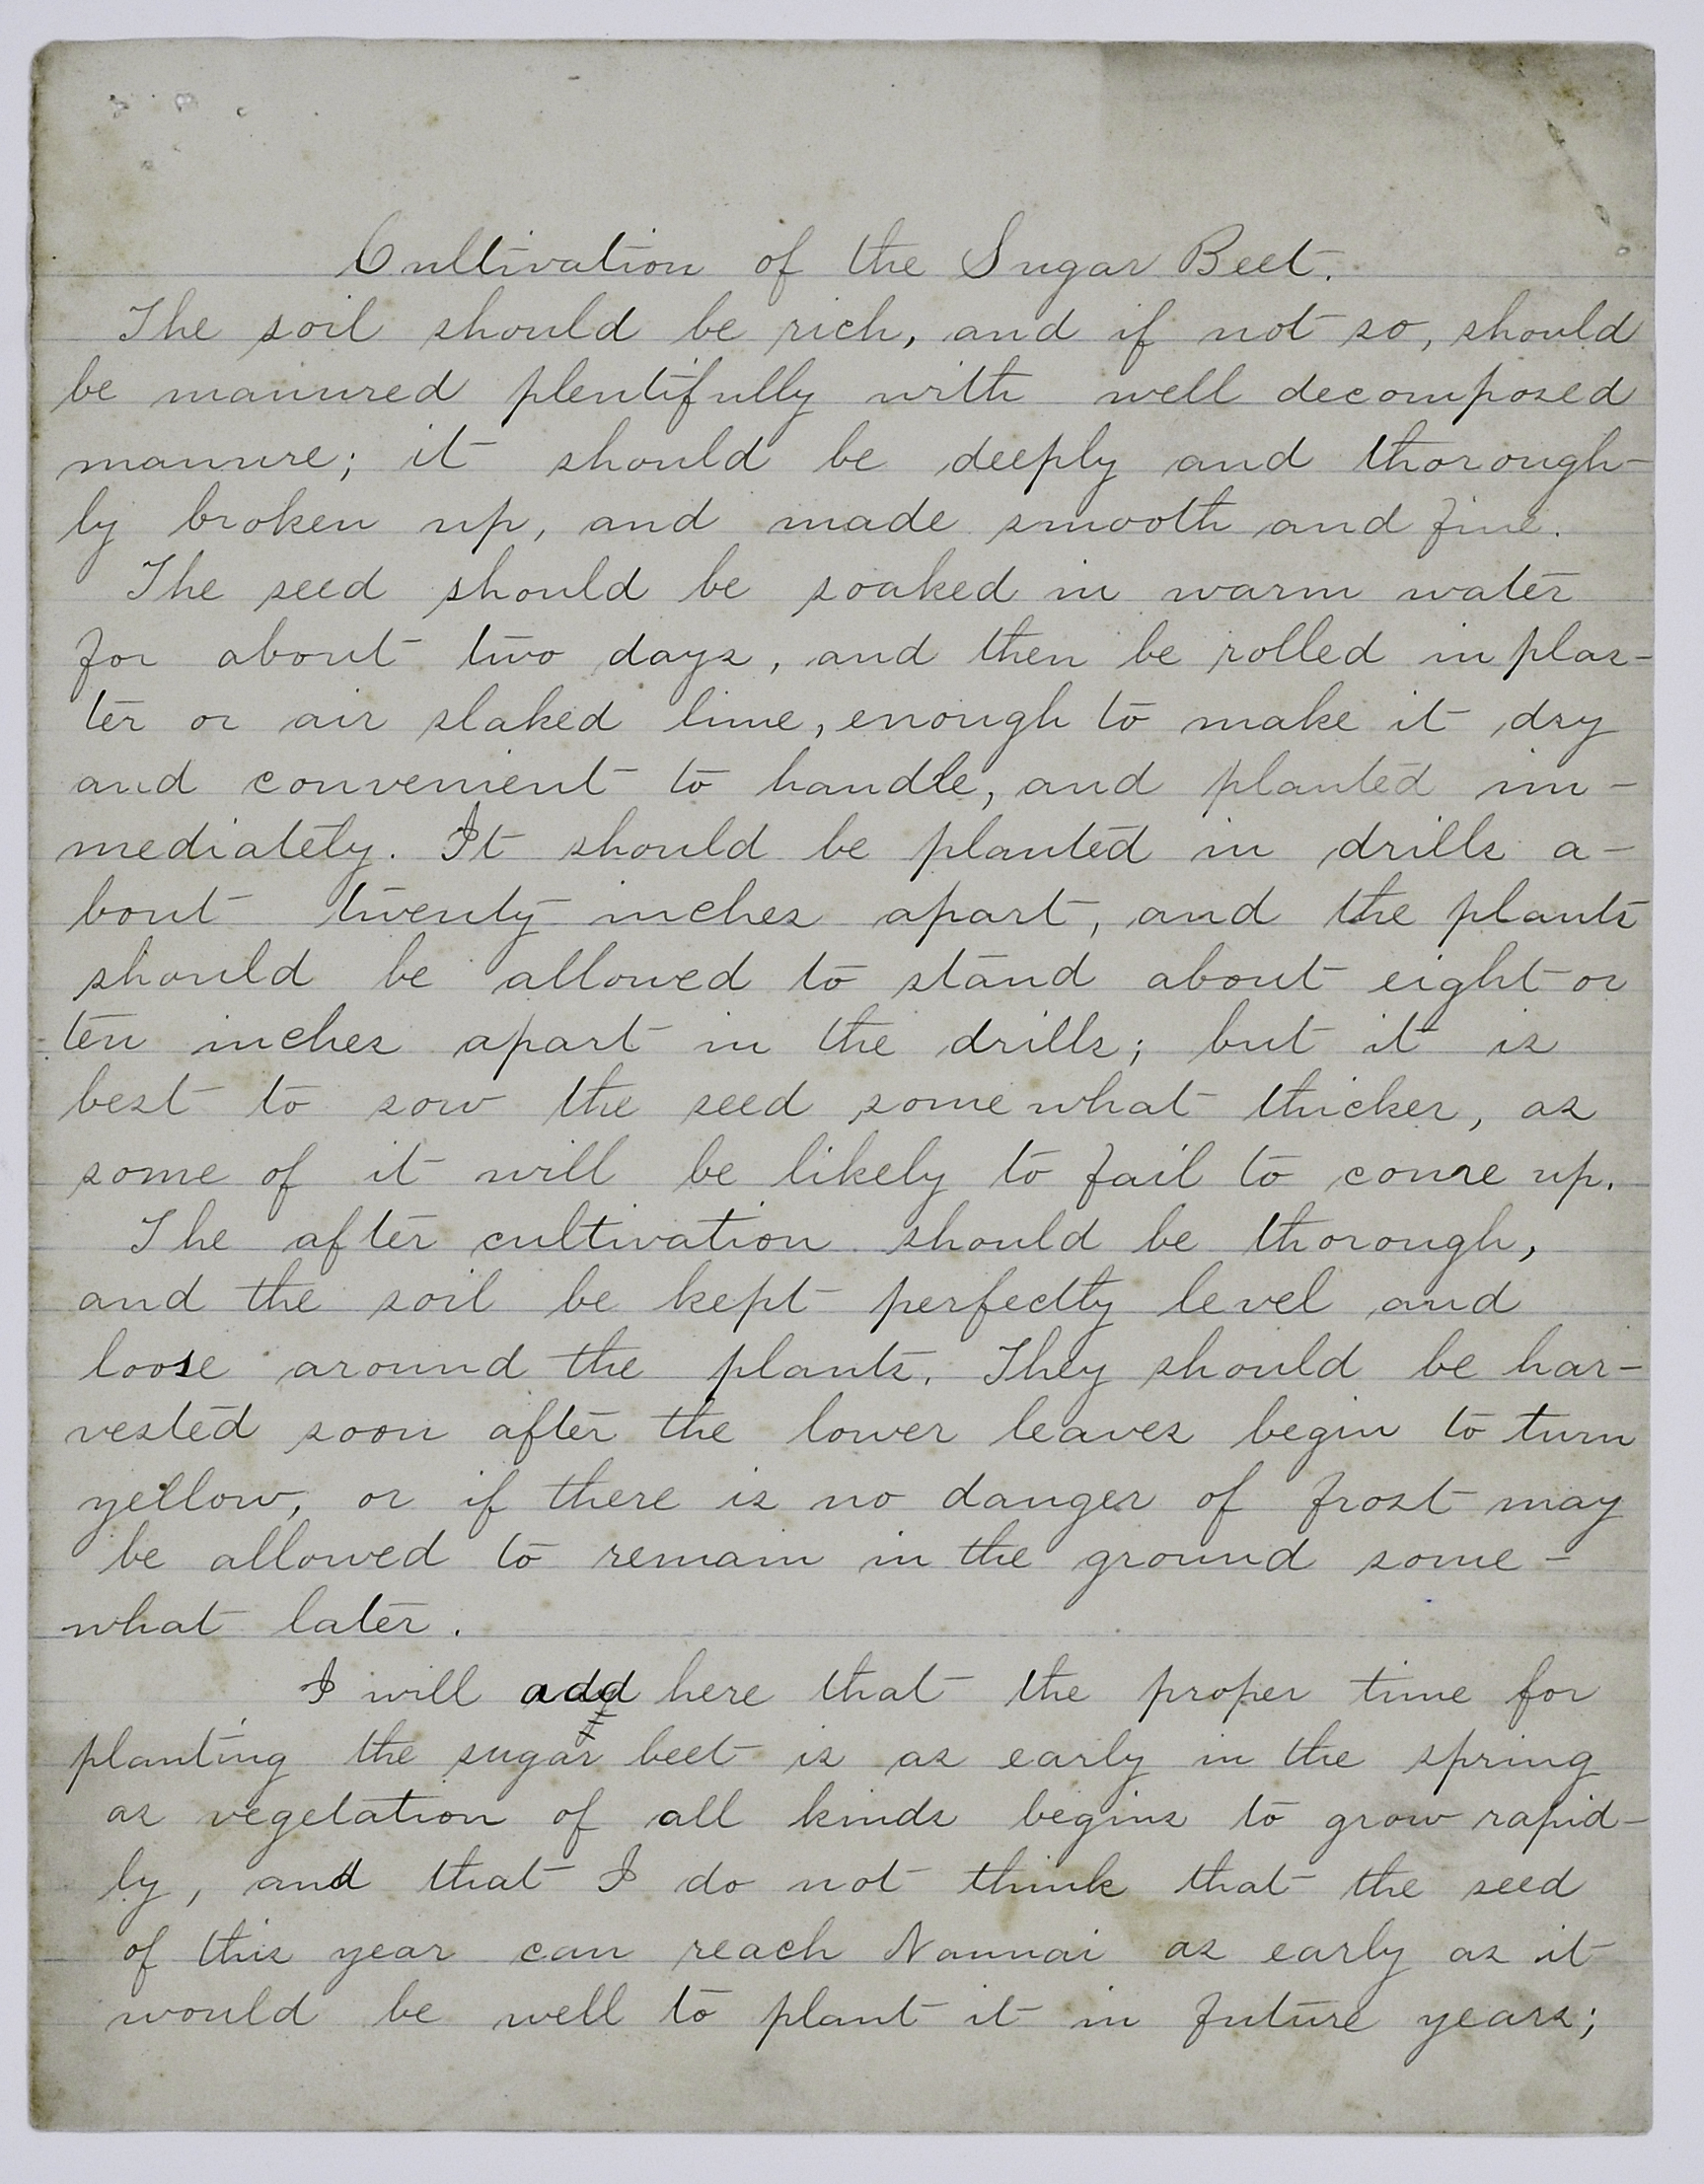 Cultivation of the Sugar Beet.
The soil should be rich, and if not so, should
be manured plentifully with well decomposed
manure; it should be deeply and thorough-
ly broken up, and made smooth and fine.
The seed should be soaked in warm water
for about two days, and then be rolled in plas-
ter or air slaked lime, enough to make it dry
and convenient to handle, and planted im-
mediately. It should be planted in drills a-
bout twenty inches apart, and the plants
should be allowed to stand about eight or
ten inches apart in the drills; but it is
best to sow the seed somewhat thicker, as
some of it will be likely to fail to come up.
The after cultivation should be thorough,
and the soil be kept perfectly level and
loose around the plants. They should be har-
vested soon after the lower leaves begin to turn
yellow, or if there is no danger of frost may
be allowed to remain in the ground some-
what later.
I will add here that the proper time for
planting the sugar beet is as early in the spring
as vegetation of all kinds begins to grow rapid-
ly, and that I do not think that the seed
of this year can reach Nannai as early as it
would be well to plant it in future years;